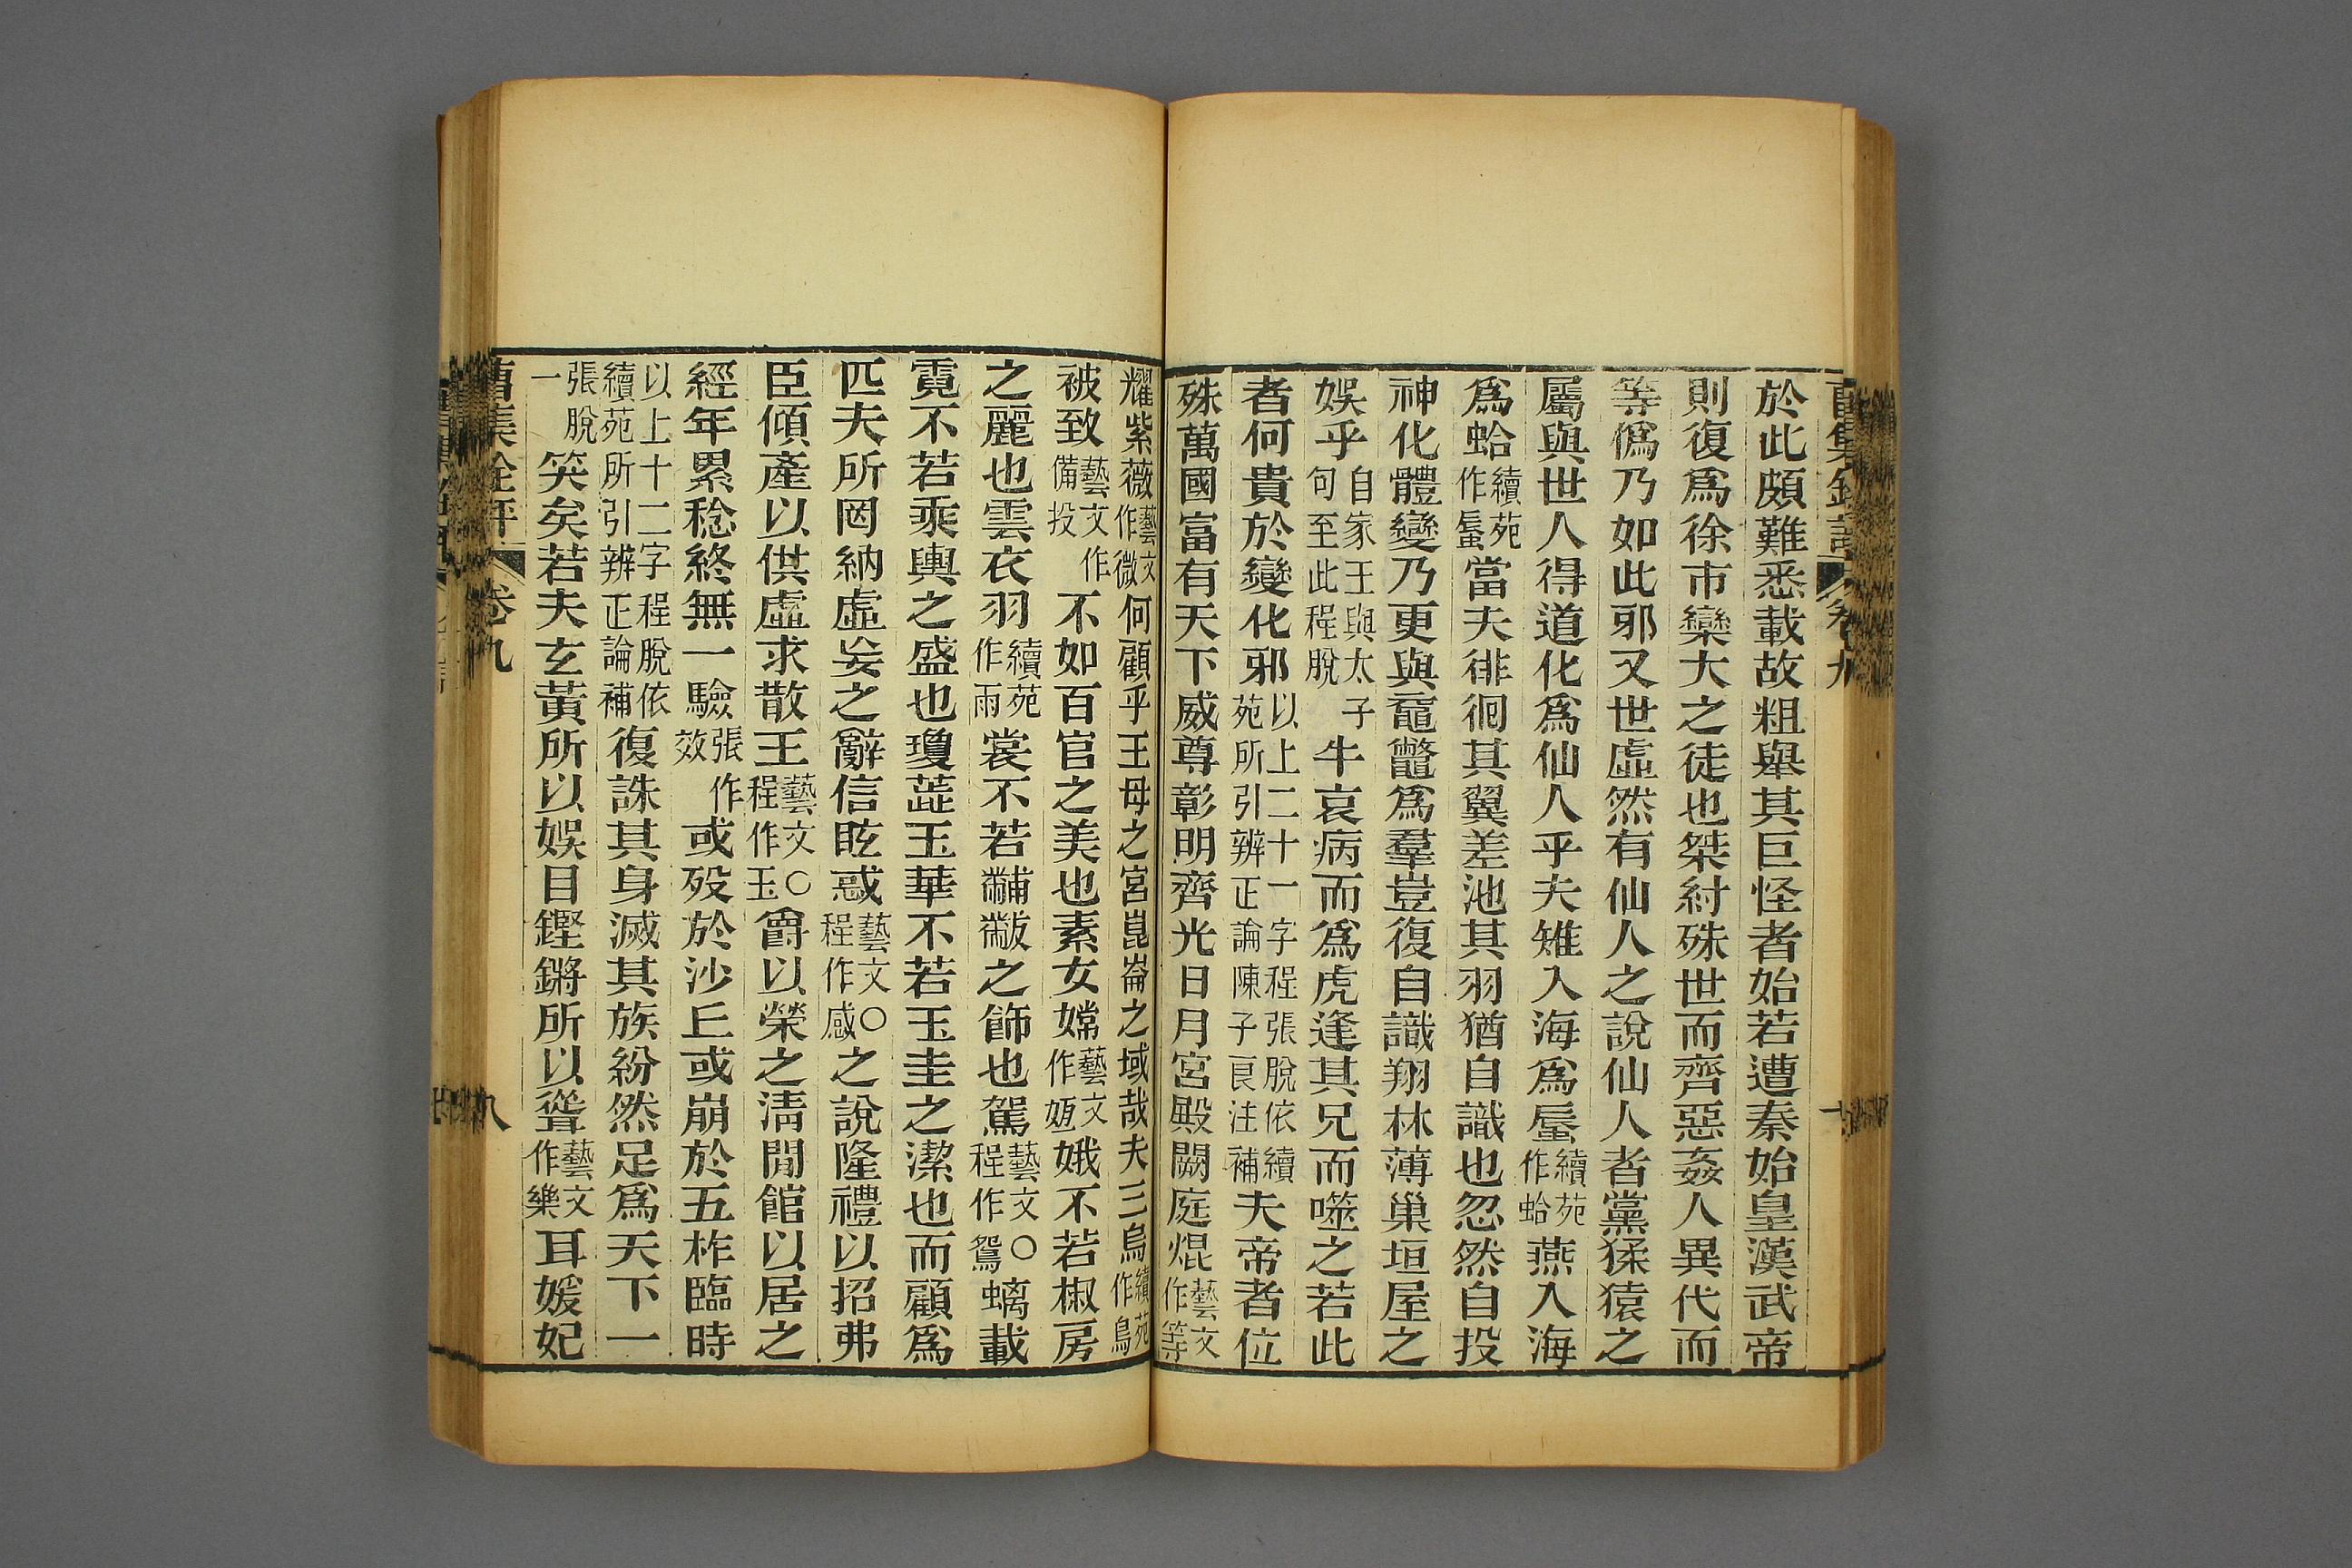 於此頗難悉載故粗舉其巨怪者始若遭秦始皇漢武帝
則復爲徐市欒大之徒也桀紂殊世而齊惡姦人異代而
等僞乃如此邪又世虛然有仙人之說仙人者黨猱猿之
屬與世人得道化爲仙人乎夫雉入海爲蜃續苑作蛤燕入海
爲蛤續苑作蜃當夫徘徊其翼差池其羽猶自識也忽然自投
神化體變乃更與黿鼈爲羣豈復自識翔林薄巢垣屋之
娛乎自家王與太子句至此程脫牛哀病而爲虎逢其兄而噬之若此
者何貴於變化邪以上二十一字程張脫依續苑所引辨正論陳子良注補夫帝者位
殊萬國富有天下威尊彰明齊光日月宮殿闕庭焜藝文作等
耀紫薇藝文作微何顧乎王母之宮崑崙之域哉夫三烏續苑作鳥
被致藝文作備投不如百官之美也素女嫦藝文作姮娥不若椒房
之麗也雲衣羽續苑作雨裳不若黼黻之飾也駕藝文〇程作鴛螭載
霓不若乘輿之盛也瓊蕋玉華不若玉圭之潔也而顧爲
匹夫所罔納虛妄之辭信眩惑藝文〇程作感之說隆禮以招弗
臣傾產以供虛求散王藝文〇程作玉爵以榮之清閒館以居之
經年累稔終無一驗張作效或歿於沙丘或崩於五柞臨時
以上十二字程脫依續苑所引辨正論補復誅其身滅其族紛然足爲天下一
張脫一笑矣若夫玄黃所以娛目鏗鏘所以聳藝文作樂耳媛妃
曹集銓評 卷九 八